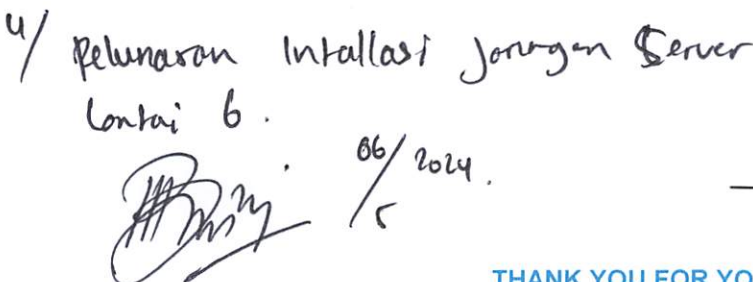 u/ Pelunasan Intallasi Jaringan Server
Lantai 6.
06/5 2024.
THANK YOU FOR YO